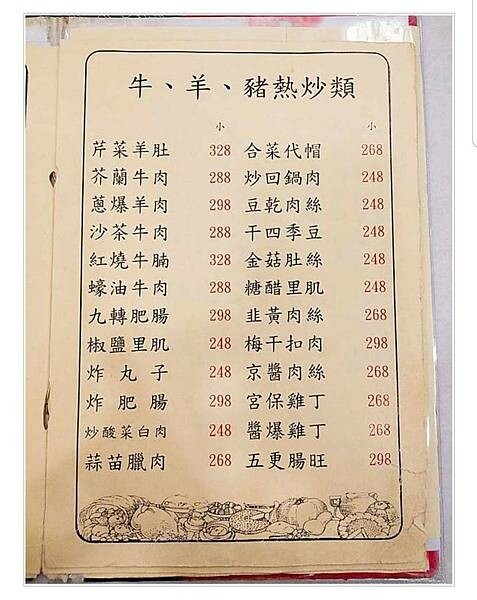 牛、羊、豬熱炒類
小 小
芹菜羊肚 328 合菜代帽 268
芥蘭牛肉 288 炒回鍋肉 248
蔥爆羊肉 298 豆乾肉絲 248
沙茶牛肉 288 干四季豆 248
紅燒牛腩 328 金菇肚絲 248
蠔油牛肉 288 糖醋里肌 248
九轉肥腸 298 韭黃肉絲 268
椒鹽里肌 248 梅干扣肉 298
炸丸子 248 京醬肉絲 268
炸肥腸 298 宮保雞丁 268
炒酸菜白肉 248 醬爆雞丁 268
蒜苗臘肉 268 五更腸旺 298